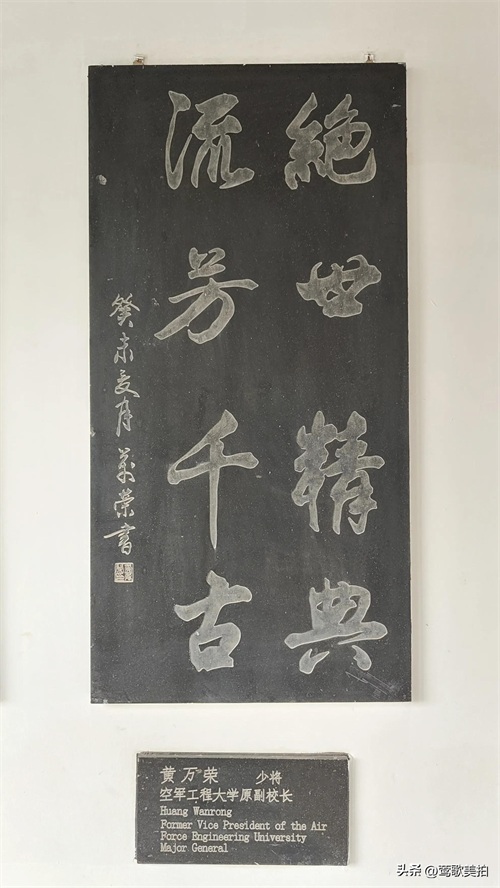 絶世精典
流芳千古
癸未夏月萬榮書
黄万荣 少将
空军工程大学原副校长
Huang Wanrong
Former Vice President of the Air
Force Engineering University
Major General
头条 @莺歌美拍